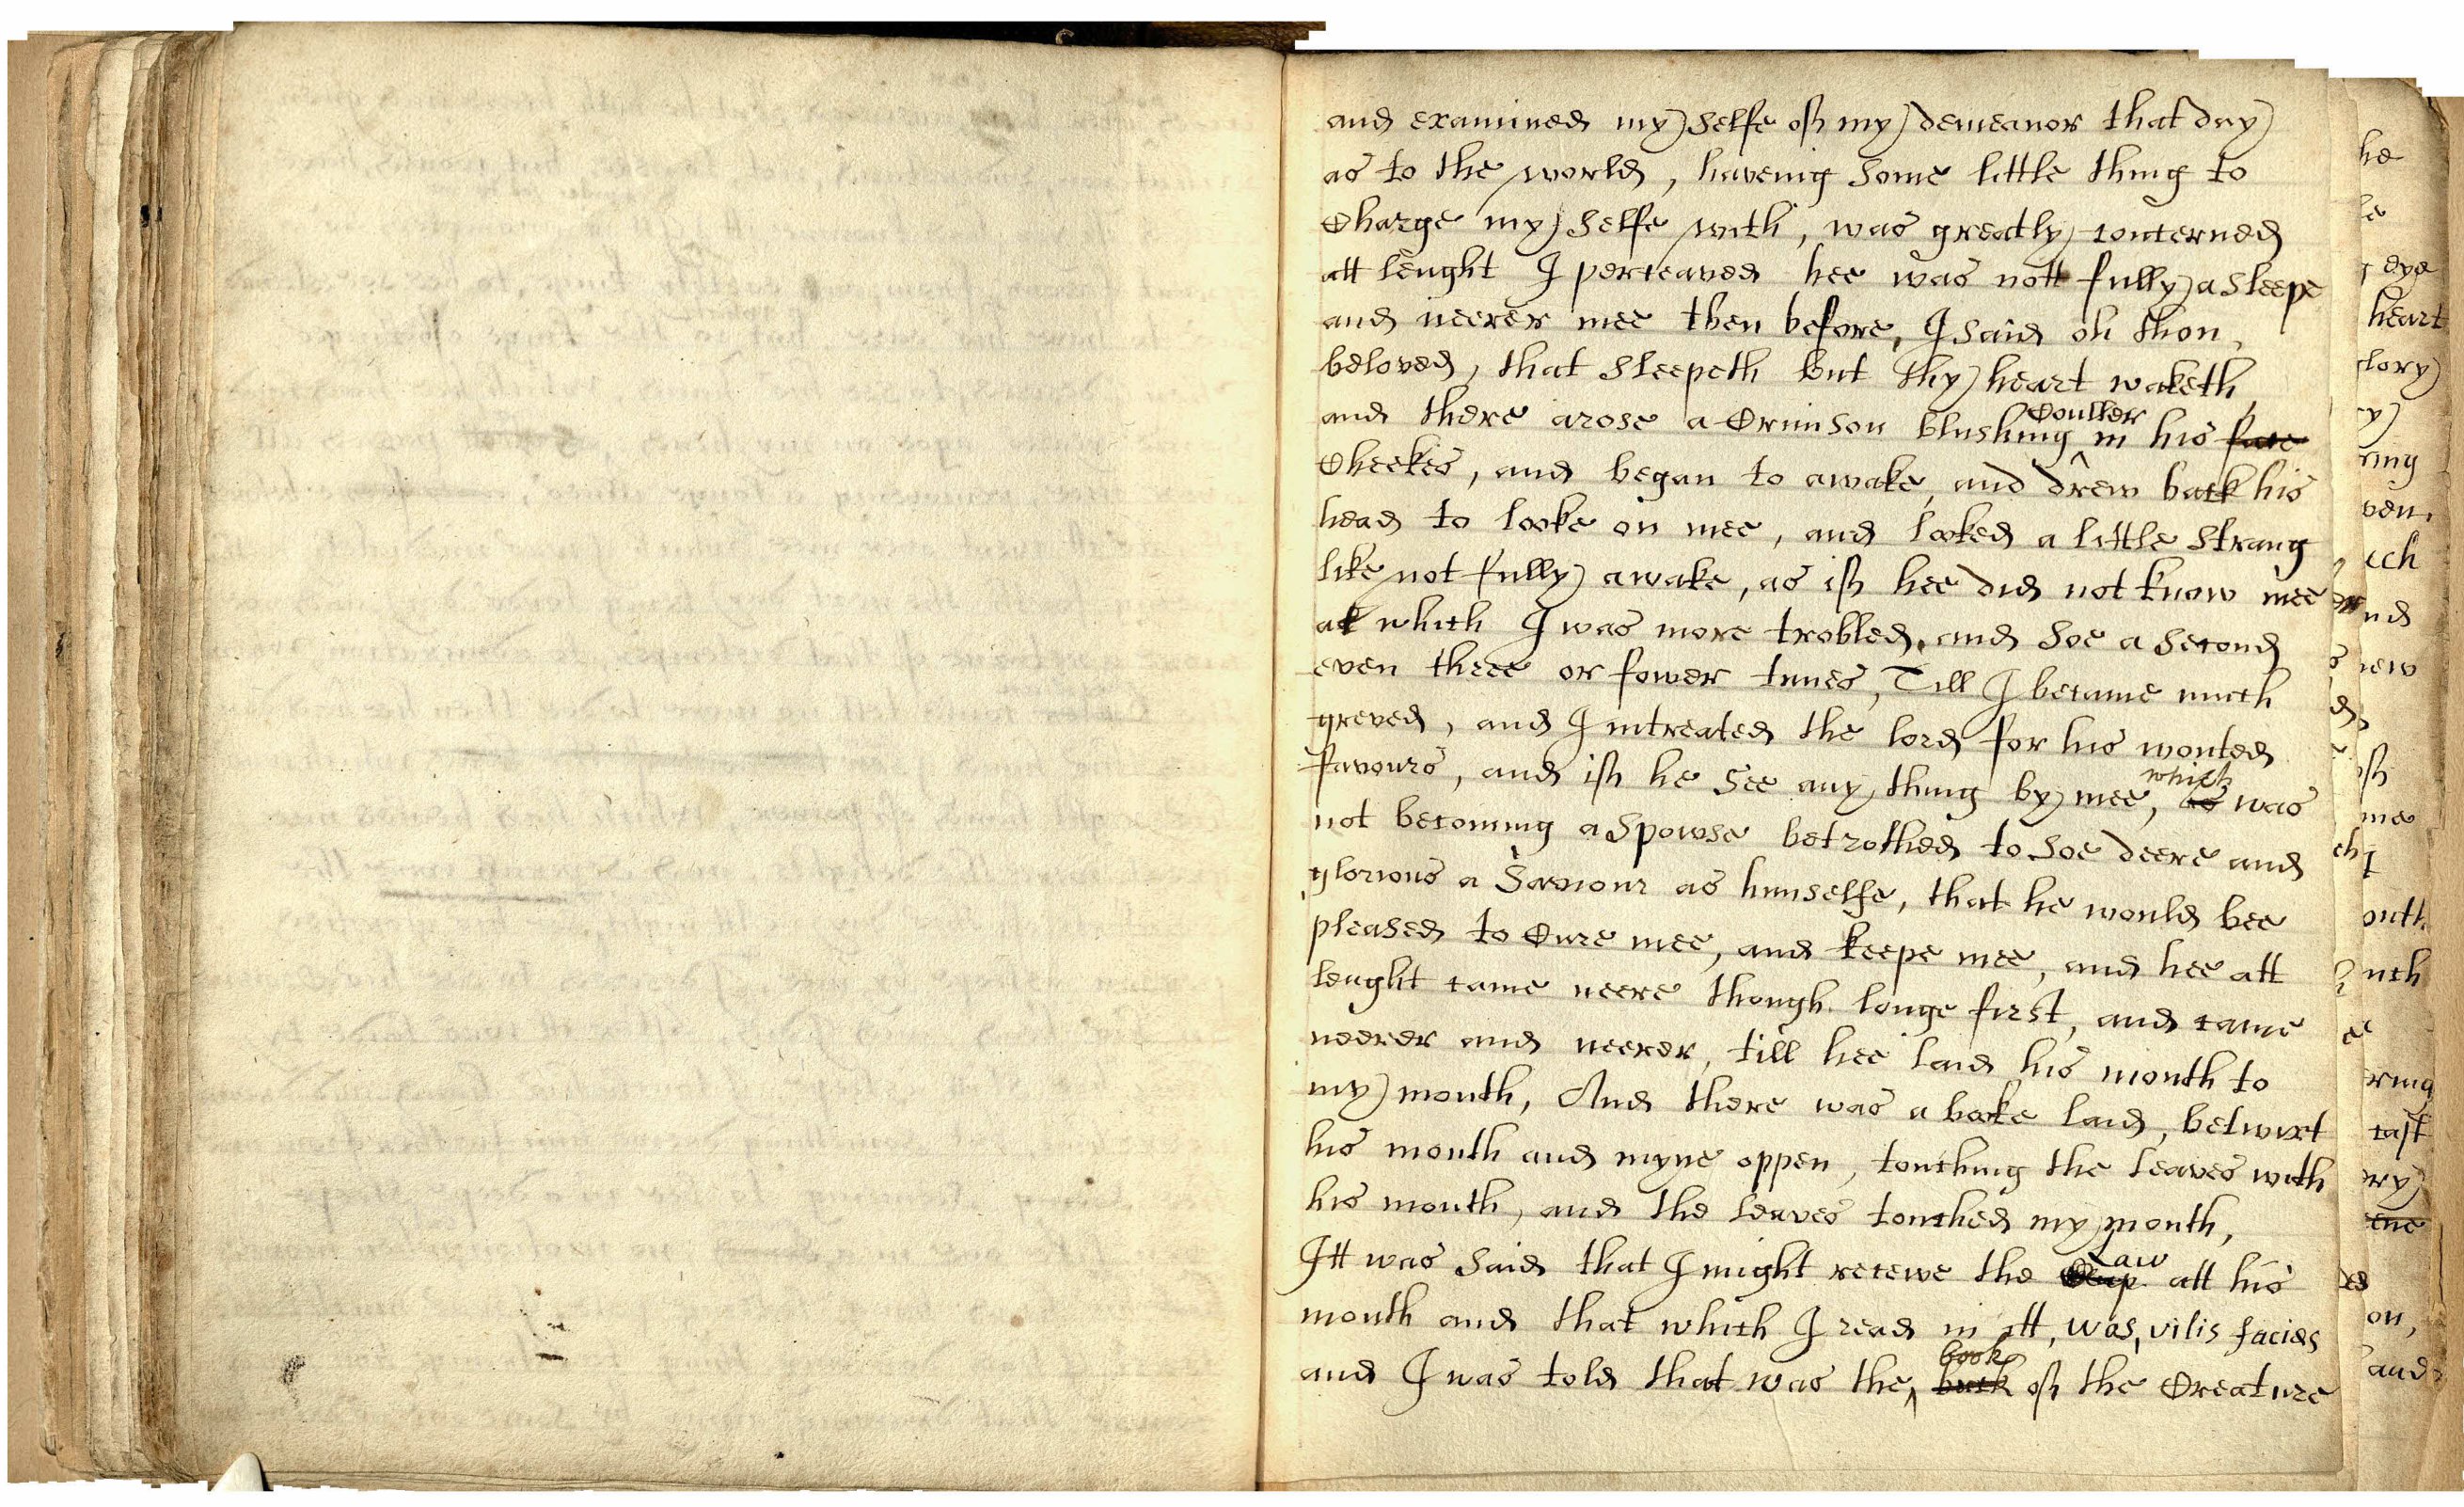 and examined my selfe of my demeanor that day
as to the world, haveing some little thing to
Charge my selfe with, was greatly concerned
att lenght I perceaved hee was nott fully a sleepe
and neerer mee then before, I said oh thou
beloved, that sleepeth but thy heart waketh
and there arose a Crimson blushing Couller in his face
Cheekes, and began to awake, and drew back his
head to looke on mee, and looked a little strang
like not fully awake, as if hee did not know mee
at which I was more trobled, and soe a second
even theee or fower times, Till I became much
greved, and I intreated the lord for his wonted
favours, and if he see any thing by mee, as which was
not becoming a Spowse betrothed to soe deere and
glorious a Saviour as himselfe, that he would bee
pleased to Cure mee, and keepe mee, and hee att
lenght came neere though longe first, and came
neerer and neerer, till hee laid his mouth to
my mouth, And there was a booke laid, betwixt
his mouth and myne oppen, touching the leaves with
his mouth, and the leaves touched my mouth,
Itt was said that I might receive the Law att his
mouth and that which I read in itt, was, vilis facies
and I was told that was the book back of the Creature
he
le
eye
heart
lory
ry
ring
ven,
ich
nd
new
of
me
I
outh
nth
ring
cast
ery
ene
on,
and